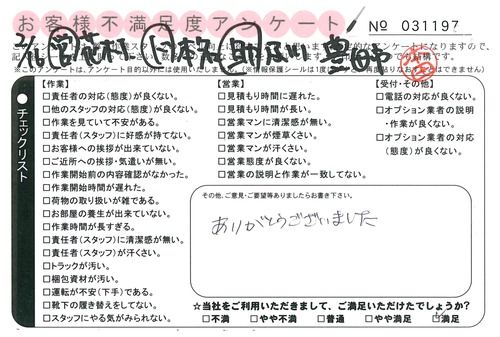 お客様不満足度アンケート
No 031197
チェックリスト
【作業】
□責任者の対応(態度)が良くない。
□他のスタッフの対応(態度)が良くない。
□作業を見ていて不安がある。
□責任者(スタッフ)に好感が持てない。
□お客様への挨拶が出来ていない。
□ご近所への挨拶・気遣いが無い。
□作業開始前の内容確認がなかった。
□作業開始時間が遅れた。
□荷物の取り扱いが雑である。
□お部屋の養生が出来ていない。
□作業時間が長すぎる。
□責任者(スタッフ)に清潔感が無い。
□責任者(スタッフ)が汗くさい。
□トラックが汚い。
□梱包資材が汚い。
□運転が不安(下手)である。
□靴下の履き替えをしてない。
□スタッフにやる気がみられない。
【営業】
□見積もり時間に遅れた。
□見積もり時間が長い。
□営業マンに清潔感が無い。
□営業マンが煙草くさい。
□営業マンが汗くさい。
□営業態度が良くない。
□営業の説明と作業が一致してない。
【受付・その他】
□電話の対応が良くない。
□オプション業者の説明
・作業が良くない。
□オプション業者の対応
(態度)が良くない。
その他、ご意見・ご要望等ありましたらお書き下さい。
ありがとうございました
☆当社をご利用いただきまして、ご満足いただけたでしょうか?
□不満 □やや不満 □普通 □やや満足 □満足